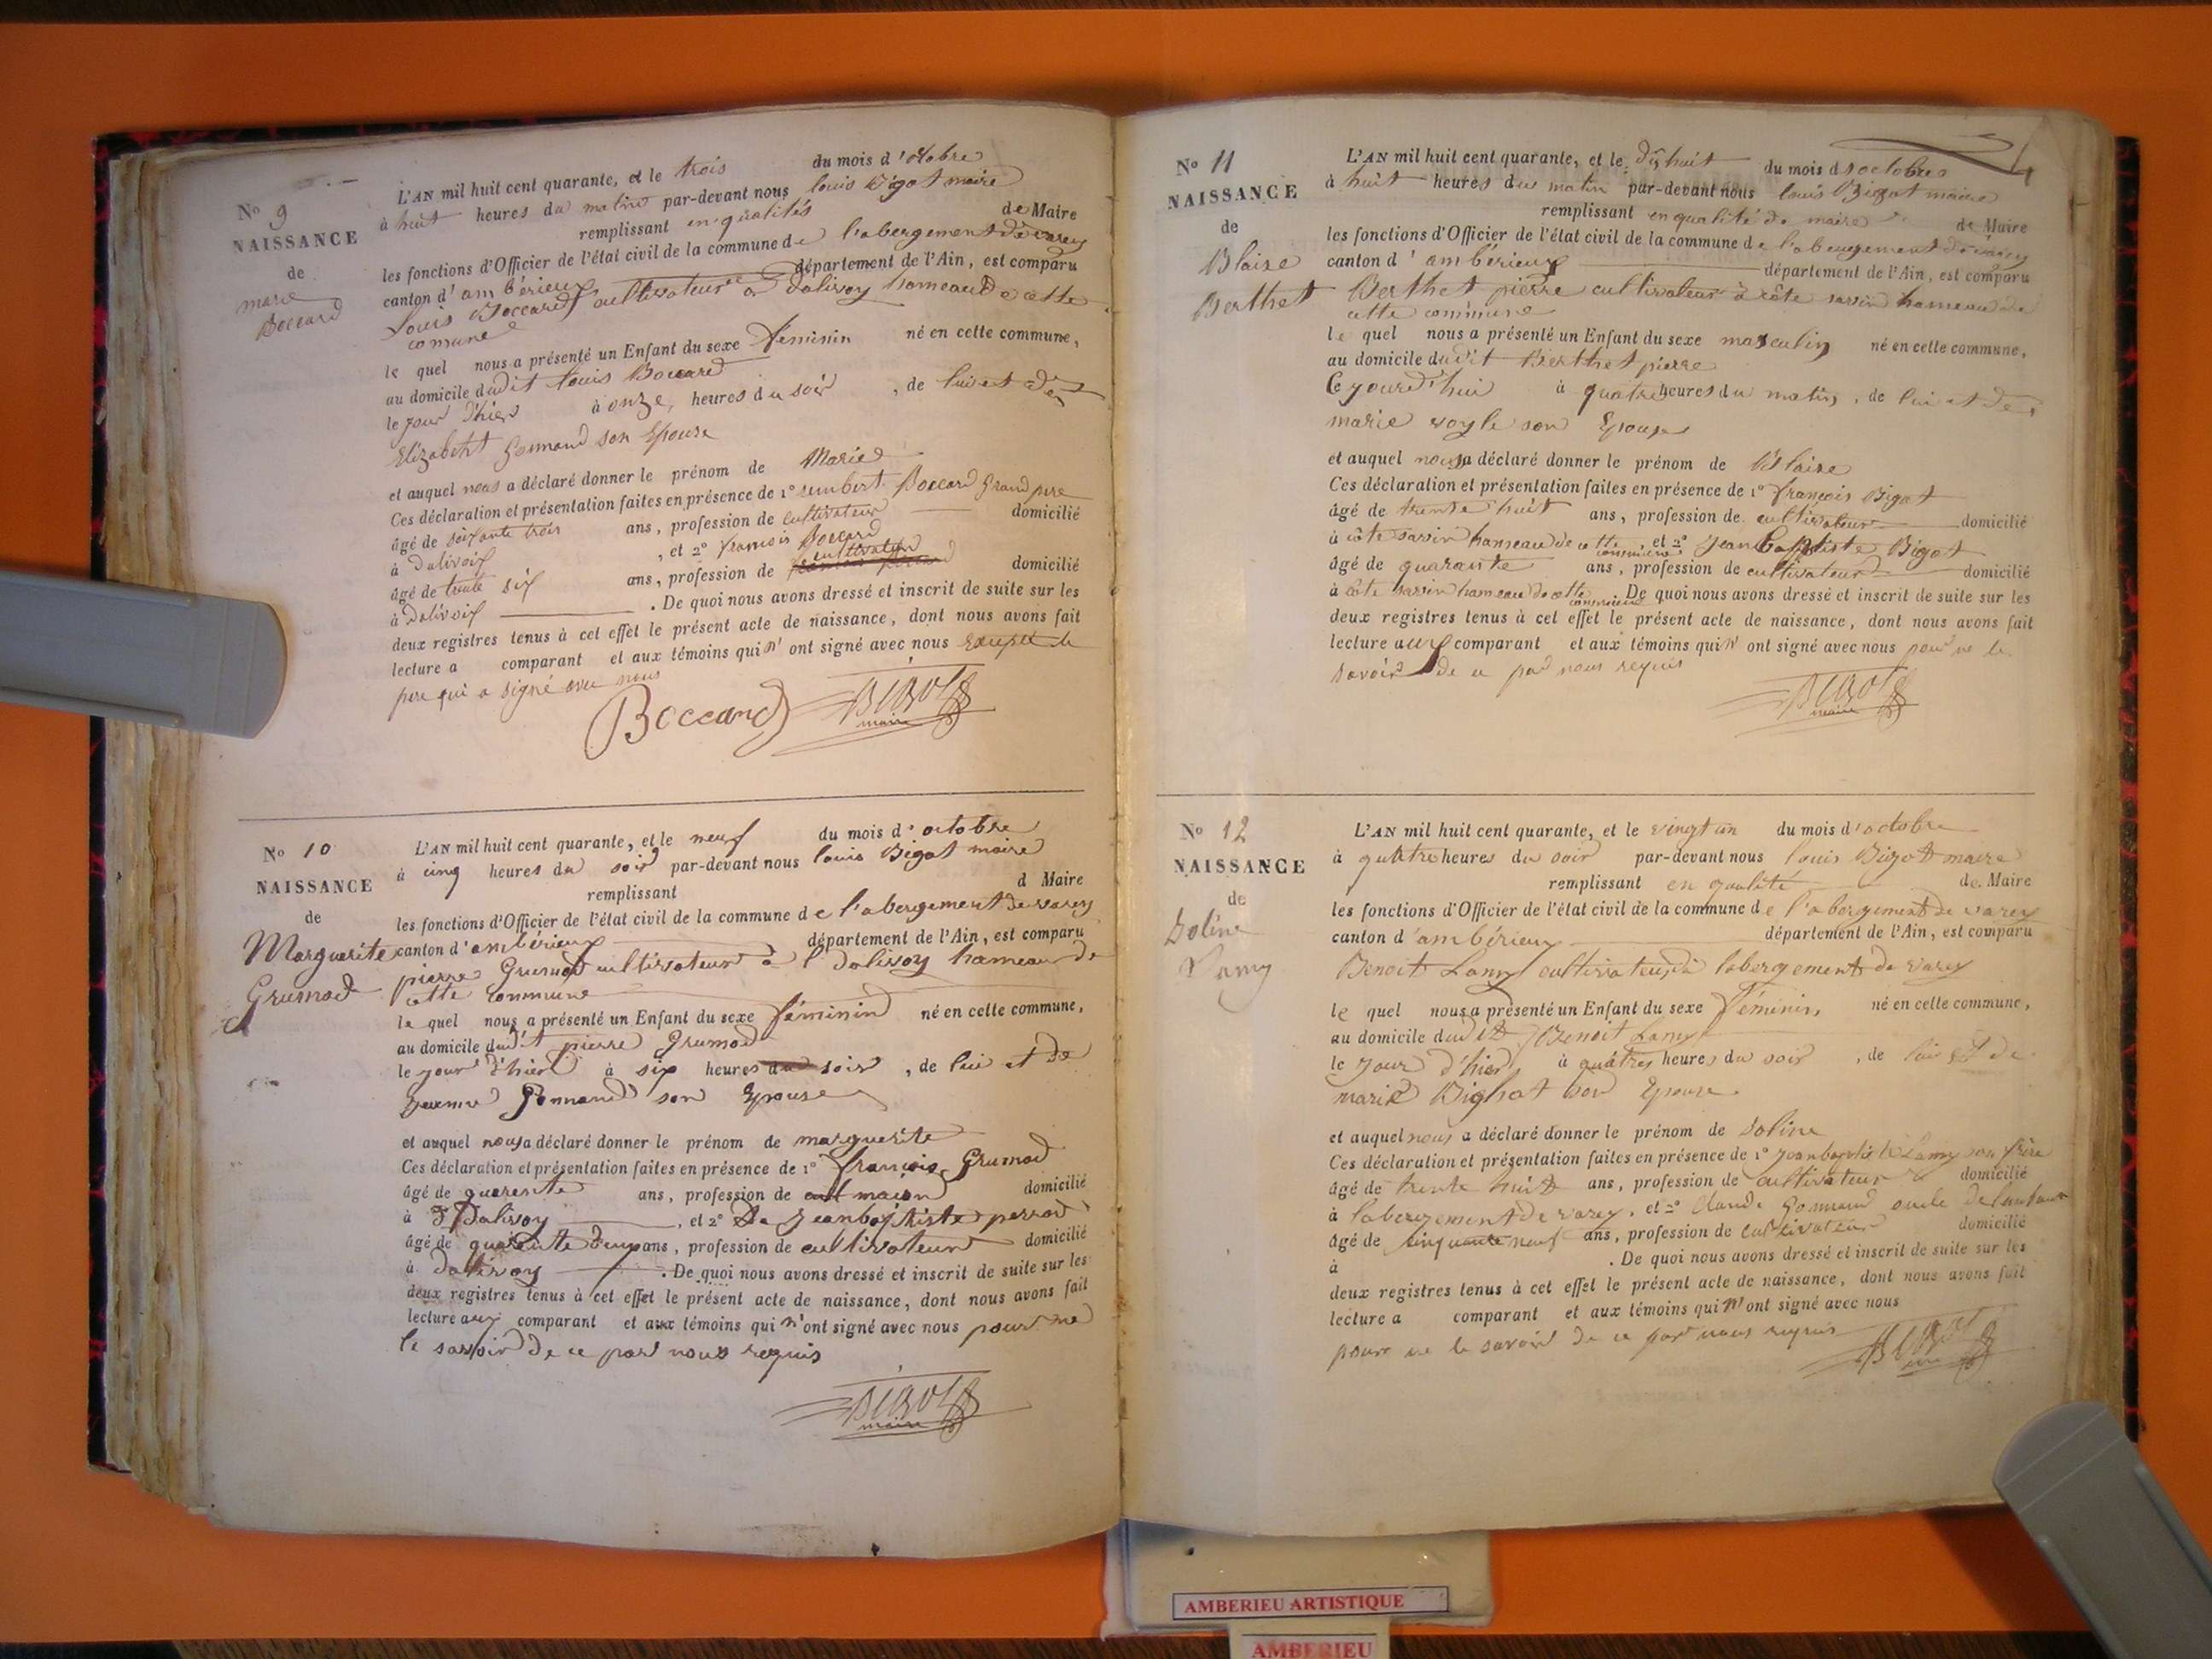 No 9
NAISSANCE
de
marie
Boccard
L'AN mil huit cent quarante, et le trois du mois d'octobre
à huit heures du matin par-devant nous louis Bigot maire
remplissant en qualités de Maire
les fonctions d'Officier de l'état civil de la commune de l'abergement de varey
canton d'ambérieux département de l'Ain, est comparu
Louis Boccard cultivateur a dalivoy hameau de cette
comune
le quel nous a présenté un Enfant du sexe féminin né en cette commune,
au domicile dudit louis Boccard
le jour d'hier à onze heures du soir, de lui et de
Elizabeht Gonnand son Epouse
et auquel nous a déclaré donner le prénom de Marie
Ces déclaration et présentation faites en présence de 1° humbert Boccard grand pere
âgé de soixante trois ans, profession de cultivateur domicilié
à dalivoix, et 2° francois Boccard
cultivateur
âgé de trente six ans, profession de domicilié
à dalivoix. De quoi nous avons dressé et inscrit de suite sur les
deux registres tenus à cet effet le présent acte de naissance, dont nous avons fait
lecture a comparant et aux témoins qui n'ont signé avec nous excepté le
pere qui a signé avec nous
Boccard BIGOT
maire
No 10
NAISSANCE
de
Marguerite
Grumod
L'AN mil huit cent quarante, et le neuf du mois d'octobre
à cinq heures du soir par-devant nous louis Bigot maire
remplissant d Maire
les fonctions d'Officier de l'état civil de la commune de l'abergement de varey
canton d'ambérieux département de l'Ain, est comparu
pierre Grumod cultivateur à l'dalivoy hameau de
cette commune
le quel nous a présenté un Enfant du sexe féminin né en cette commune,
au domicile dudit pierre Grumod
le jour d'hier à six heures du soir, de lui et de
Gonnand son Epouse
et auquel nous a déclaré donner le prénom de marguerite
Ces déclaration et présentation faites en présence de 1° françois Grumod
âgé de quarente ans, profession de maçon domicilié
à Dalivoy, et 2° De jeanbaptiste perrod
âgé de quarente deux ans, profession de cultivateur domicilié
à dalivoy. De quoi nous avons dressé et inscrit de suite sur les
deux registres tenus à cet effet le présent acte de naissance, dont nous avons fait
lecture aux comparant et aux témoins qui n'ont signé avec nous pour ne
le savoir de ce par nous requis
BIGOT
maire
No 11
NAISSANCE
de
Blaise
Berthet
L'AN mil huit cent quarante, et le dix huit du mois d octobres
à huit heures du matin par-devant nous louis Bigot maire
remplissant en qualité de maire de Maire
les fonctions d'Officier de l'état civil de la commune de l'abergement de varey
canton d'ambérieux département de l'Ain, est comparu
Berthet pierre cultivateur à côte savin hameau de
cette commune
le quel nous a présenté un Enfant du sexe masculin né en cette commune,
au domicile dudit Berthet pierre
Ce jourd'hui à quatre heures du matin, de lui et de
marie voyle son Epouse
et auquel nous a déclaré donner le prénom de Blaise
Ces déclaration et présentation faites en présence de 1° françois Bigot
âgé de trente huit ans, profession de cultivateur domicilié
à côte savin hameau de cette commune, et 2° Jean Baptiste Bigot
âgé de quarante ans, profession de cultivateur domicilié
à côte savin hameau de cette commune. De quoi nous avons dressé et inscrit de suite sur les
deux registres tenus à cet effet le présent acte de naissance, dont nous avons fait
lecture aux comparant et aux témoins qui n'ont signé avec nous pour ne le
savoir de ce par nous requis
BIGOT
maire
No 12
NAISSANCE
de
Soline
Lamy
L'AN mil huit cent quarante, et le vingt un du mois d'octobre
à quatre heures du soir par-devant nous louis Bigot maire
remplissant en qualité de Maire
les fonctions d'Officier de l'état civil de la commune de l'abergement de varey
canton d'ambérieux département de l'Ain, est comparu
Benoit Lamy cultivateur à labergement de varey
le quel nous a présenté un Enfant du sexe féminin né en cette commune,
au domicile dudit Benoit Lamy
le jour d'hier à quatres heures du soir, de lui et de
marie Bighot son Epouse
et auquel nous a déclaré donner le prénom de soline
Ces déclaration et présentation faites en présence de 1° jeanbaptiste Lamy son frère
âgé de trente huit ans, profession de cultivateur domicilié
à labergement de varey, et 2° Claude Gonnand oncle de l'enfant
âgé de cinquante neuf ans, profession de cultivateur domicilié
à. De quoi nous avons dressé et inscrit de suite sur les
deux registres tenus à cet effet le présent acte de naissance, dont nous avons fait
lecture a comparant et aux témoins qui n'ont signé avec nous
pour ne le savoir de ce par nous requis BIGOT
maire
AMBERIEU ARTISTIQUE
AMBERIEU